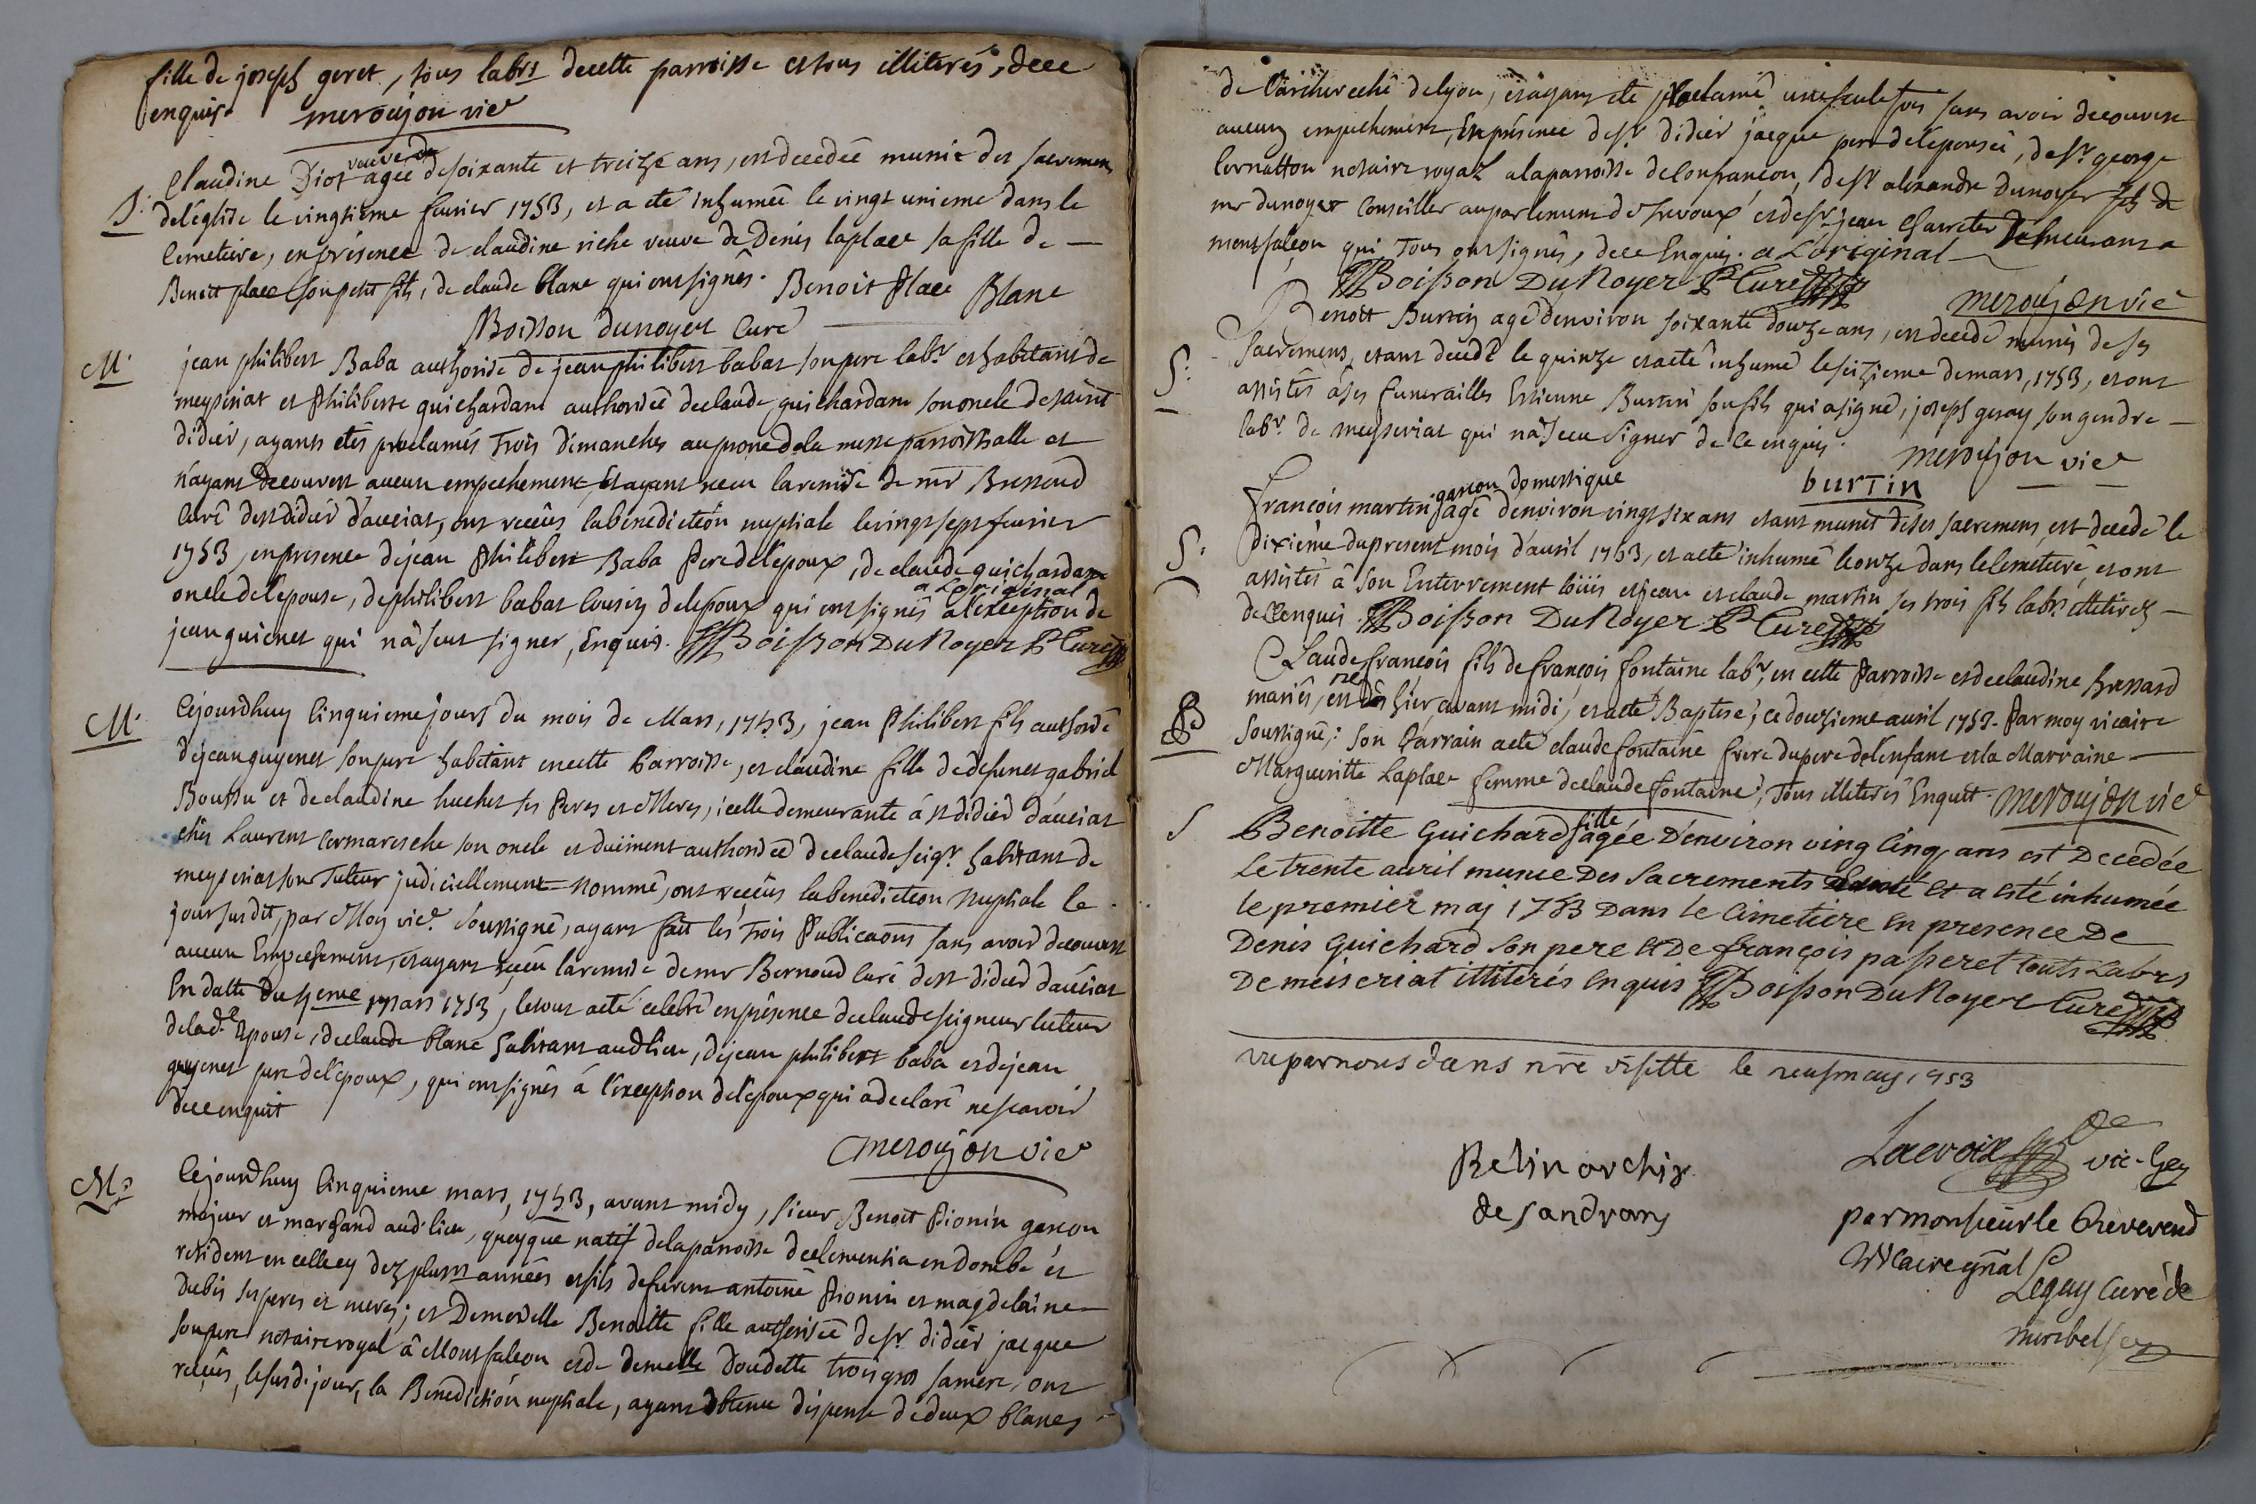 fille de joseph geret, tous labrs decette parroisse et tous illiterés, dece
enquis meroujon vice
S. Claudine Diot veuve de agée desoixante et treize ans, est decedée munie des sacremens
del'église le vingtieme fevrier 1753, et a eté inhumée le vingt unieme dans le
cemetiere, en présence de claudine riche veuve de Denis laplace sa fille de
Benoit place son petit fils, de claude blanc qui ont signés. Benoit Place Blanc
Boisson dunoyer Curé
M. jean philibert Baba authorisé de jean philibert babat son pere labr et habitant de
meyseriat et Philiberte guichardant authorisée declaude guichardant son oncle de saint
didier, ayants etés proclamés Trois dimanches au prone de la messe parroissialle et
n'ayant decouvert aucun empechement, Et ayant receu laremise de mr Bernoud
Curé de st didier d'auciat, ont reçûs la benediction nuptiale le vingt sept fevrier
1753, en presence de jean Philibert Baba Pere del'epoux, de claude guichardant
oncle del'epouse, dephilibert babat Cousin del'epoux qui ont signés a L'original al'exception de
jean guienet qui n'a sceut signer, Enquis. Boisson DuNoyer P Curé
M. Cejourdhuy Cinquieme jours du mois de Mars, 1753, jean Philibert fils authorisé
dejean guyenet son pere habitant en cette Parroisse, et claudine fille de defunct gabriel
Boussu et de claudine huchet ses Peres et Meres, icelle demeurante à st didier d'auciat
chès Laurent Cormaresche son oncle et duëment authorisée declaude seigr habitant de
meyseriat son Tuteur judiciellement nommé, ont reçûs la benediction Nuptiale le
jour susdit, par Moy vice. soussigné, ayant fait les Trois Publications sans avoir decouvert
aucun Empechement, et ayant reçeu laremise de mr Bernoud Curé de st didier d'auciat
En datte du 4eme mars 1753, letout aeté celebré en présence declaude seigneur tuteur
delade Epouse, declaude blanc habitant audlieu, dejean philibert baba et dejean
guyenet pere del'epoux, qui ont signés à l'exception del'epoux qui a declaré ne scavoir
dece enquit
meroujon vice
M. Cejourdhuy Cinquieme mars, 1753, avant midy, sieur Benoit Pionin garcon
majeur et marchand aud. lieu, quoyque natif de la parroisse de clementia en Dombe et
resident en celle cy dez plusrs années et fils de furent antoine Pionin et magdelaine
Dubis ses peres et meres; et Demoiselle Benoitte fille authorisée de sr didier jacque
son pere notaire royal à Montfalcon et de demelle Doudette troisgros sa mere, ont
reçûs, le susdt jour, la Benediction nuptiale, ayant obtenu dispense de deux blancs
de l'archeveché de lyon, et ayant eté proclamé une seule fois sans avoir decouvert
aucun empechement, En présence de sr didier jacque pere de l'epousée, de sr george
Cornatton notaire royal a la parroisse de confrancon, de sr alexandre Dunoyer fils de
mr dunoyer Conseiller au parlement de trevoux et de sr jean Charcter Demeurant a
montfalcon qui Tous ont signés, dece Enquis. a L'original
Boisson DuNoyer P Curé meroujon vice
S. Benoit Burtin agé d'environ soixante douze ans, est decedé munis de ses
sacremens, etant decedé le quinze et a eté inhumé le seizieme de mars, 1753, et ont
assistés à ses funerailles Estienne Burtin son fils qui a signé, joseph geray son gendre
labr. de meyseriat qui n'a sceu signer de ce enquis. meroujon vice
burtin
S. François martin garcon domestique agé d'environ vingt six ans etant munit de ses sacremens, est decedé le
dixième du present mois d'avril 1753, et a eté inhumé le onze dans le cemetiere, et ont
assistés à son Enterrement loüis et jean et claude martin ses trois fils labrs illetirés
de ce enquis Boisson DuNoyer P Curé
B Claude françois fils de françois fontaine labr, en cette Parroisse et de claudine bressard
mariés, est né hier, avant midi, et a eté Baptisé, ce douzieme avril 1753. Par moy vicaire
soussigné; son Parrain a eté claude fontaine frere du pere de l'enfant et la Marraine
Margueritte Laplace femme de claude fontaine, Tous illiterés Enquit. meroujon vice
S Benoitte Guichard fille agée D'environ ving Cinq ans est Decedée
Le trente avril munie Des Sacrements et a esté inhumée
le premier maj 1753 Dans le Cimetière En presence De
Denis Guichard Son pere et De françois passeret touts Labrs
De meiseriat illiterés Enquis Boisson DuNoyer Curé
vu par nous dans nre visitte le neuf may 1753
Lacroix vic-Gen
Belin archip.
de sandrans
par monsieur le Reverend
Vicaire gñal
Leguy Curé de
miribel secr